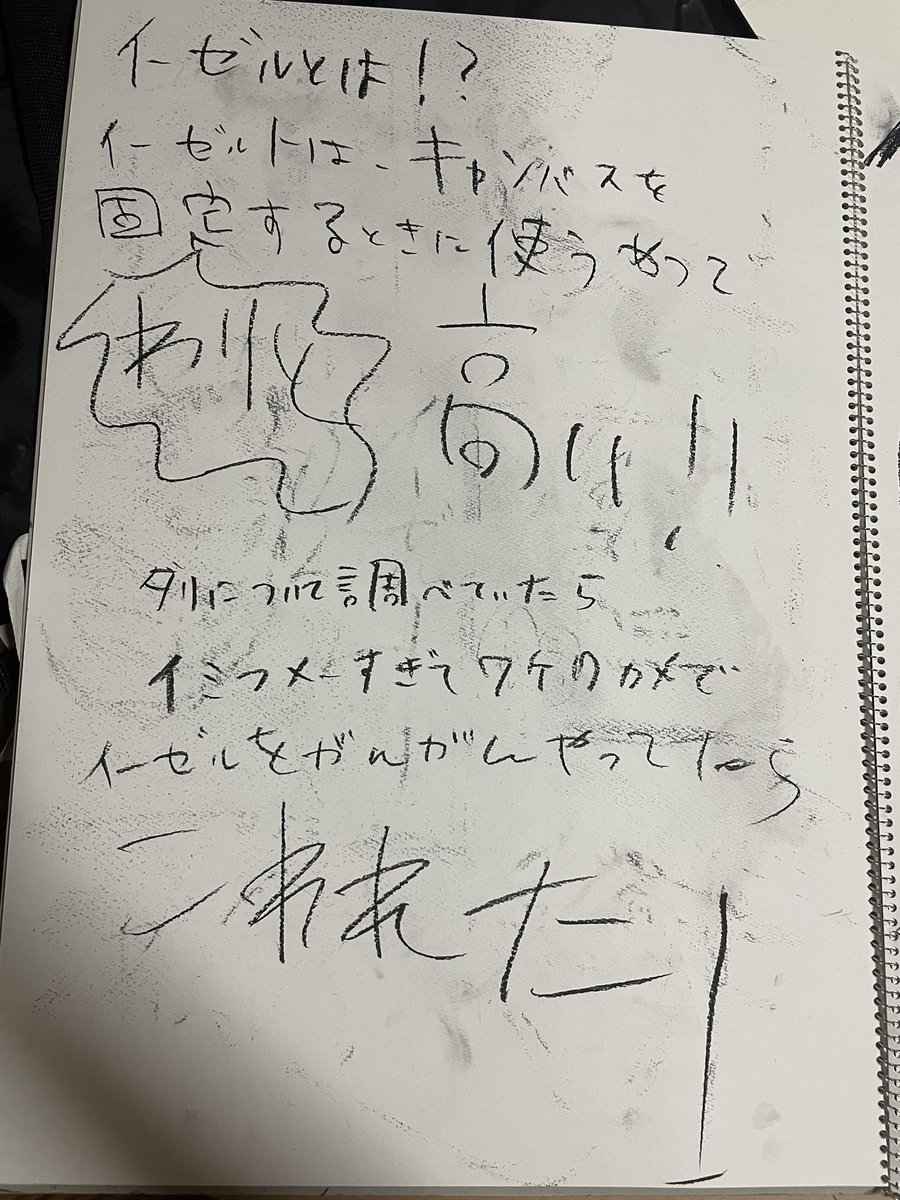 イーゼルとは!?
イーゼルトは、キャンバスを
固定するときに使うめって
わりと高めり!!
ダリについて調べていたら
イミフメーすぎてワケワカメで
イーゼルをガンガンやってたら
こわれた!